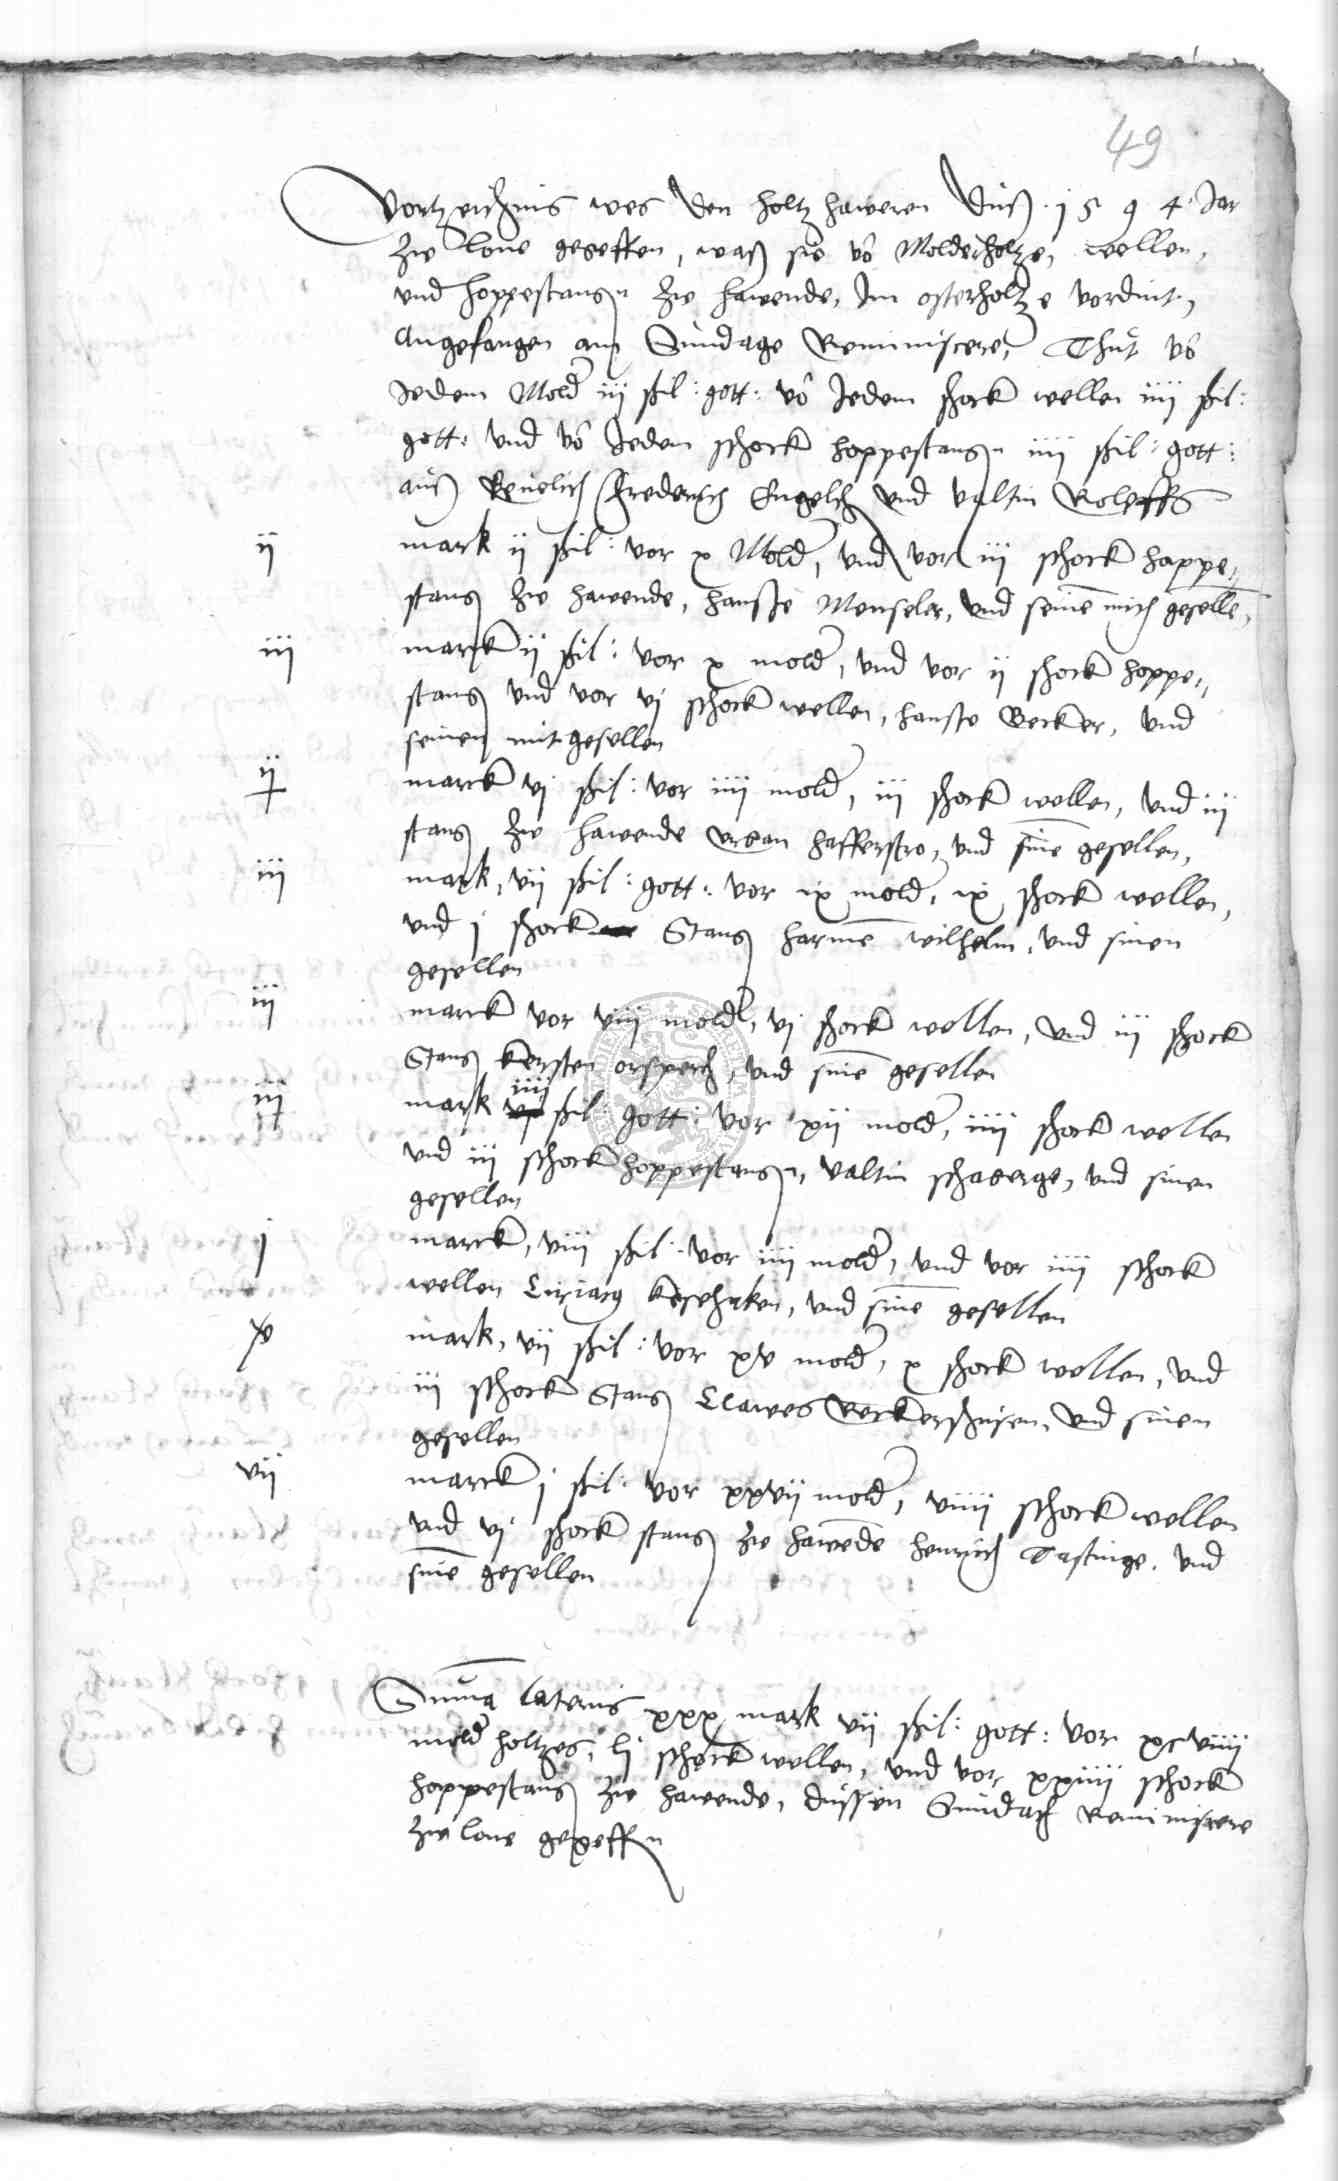 49
Vortzeichnis wes den holtz haweren duß 1594 Jar
zw lone gegeffen, waß sie vo Molderholtze, wellen,
vnd hoppestangn zw hawende, Im osterholtze vordint,
Angefangen am Sundage Reminiscere, Thut vo
Jedem Molder iii ßil: gott: vo Jedem schock wellen iiii ßil:
gott: vnd vo Jedem schock hoppestangn iiii ßil: gott:
auch Frederich Engelch vnd valtin Roleffs
ii mark ii ßil: vor x Molder, vnd vor iii schock hoppe-
stang zw hawende, hanße Menseler, vnd seine mith geselle,
iii marck ii ßil: vor x molder, vnd vor ii schock hoppe-
stang vnd vor vi schock wellen, hanße Becker, vnd
seinen mitgesellen
ii marck vi ßil: vor iiii molder, iii schock wellen, vnd iii
stang zw hawende vrban hafferstro, vnd sine gesellen,
iii mark, vii ßil: gott: vor ix molder, ix schock wellen,
vnd j schock Stang harmen wilhelm, vnd sinen
gesellen
iii marck vor viii molder, vi schock wellen, vnd iii schock
Stang kersten orspech, vnd sine gesellen
iii mark iiii ßil: gott: vor xii molder, iiii schock wellen
vnd iii schock hoppestangn, valtin schaberge, vnd sinen
gesellen
j marck, viii ßil: vor iiii molder, vnd vor iiii schock
wellen Ciriacg kesehaken, vnd sine gesellen
mark, vii ßil: vor xv molder, x schock wellen, vnd
iii schock Stang Clawes Beckershusen, vnd sinen
gesellen
vii marck j ßil: vor xxvii molder, viiii schock wellen
vnd vi schock stang zw hawende henrich Tastinge, vnd
sine gesellen
Summa lateris xxx mark vii ßil: gott: vor xcviiii
molder holtzes, lj schock wellen, vnd vor xxiiii schock
hoppestang zw hawende, dussen Sundach Reminiscere
zw lone gegeffn